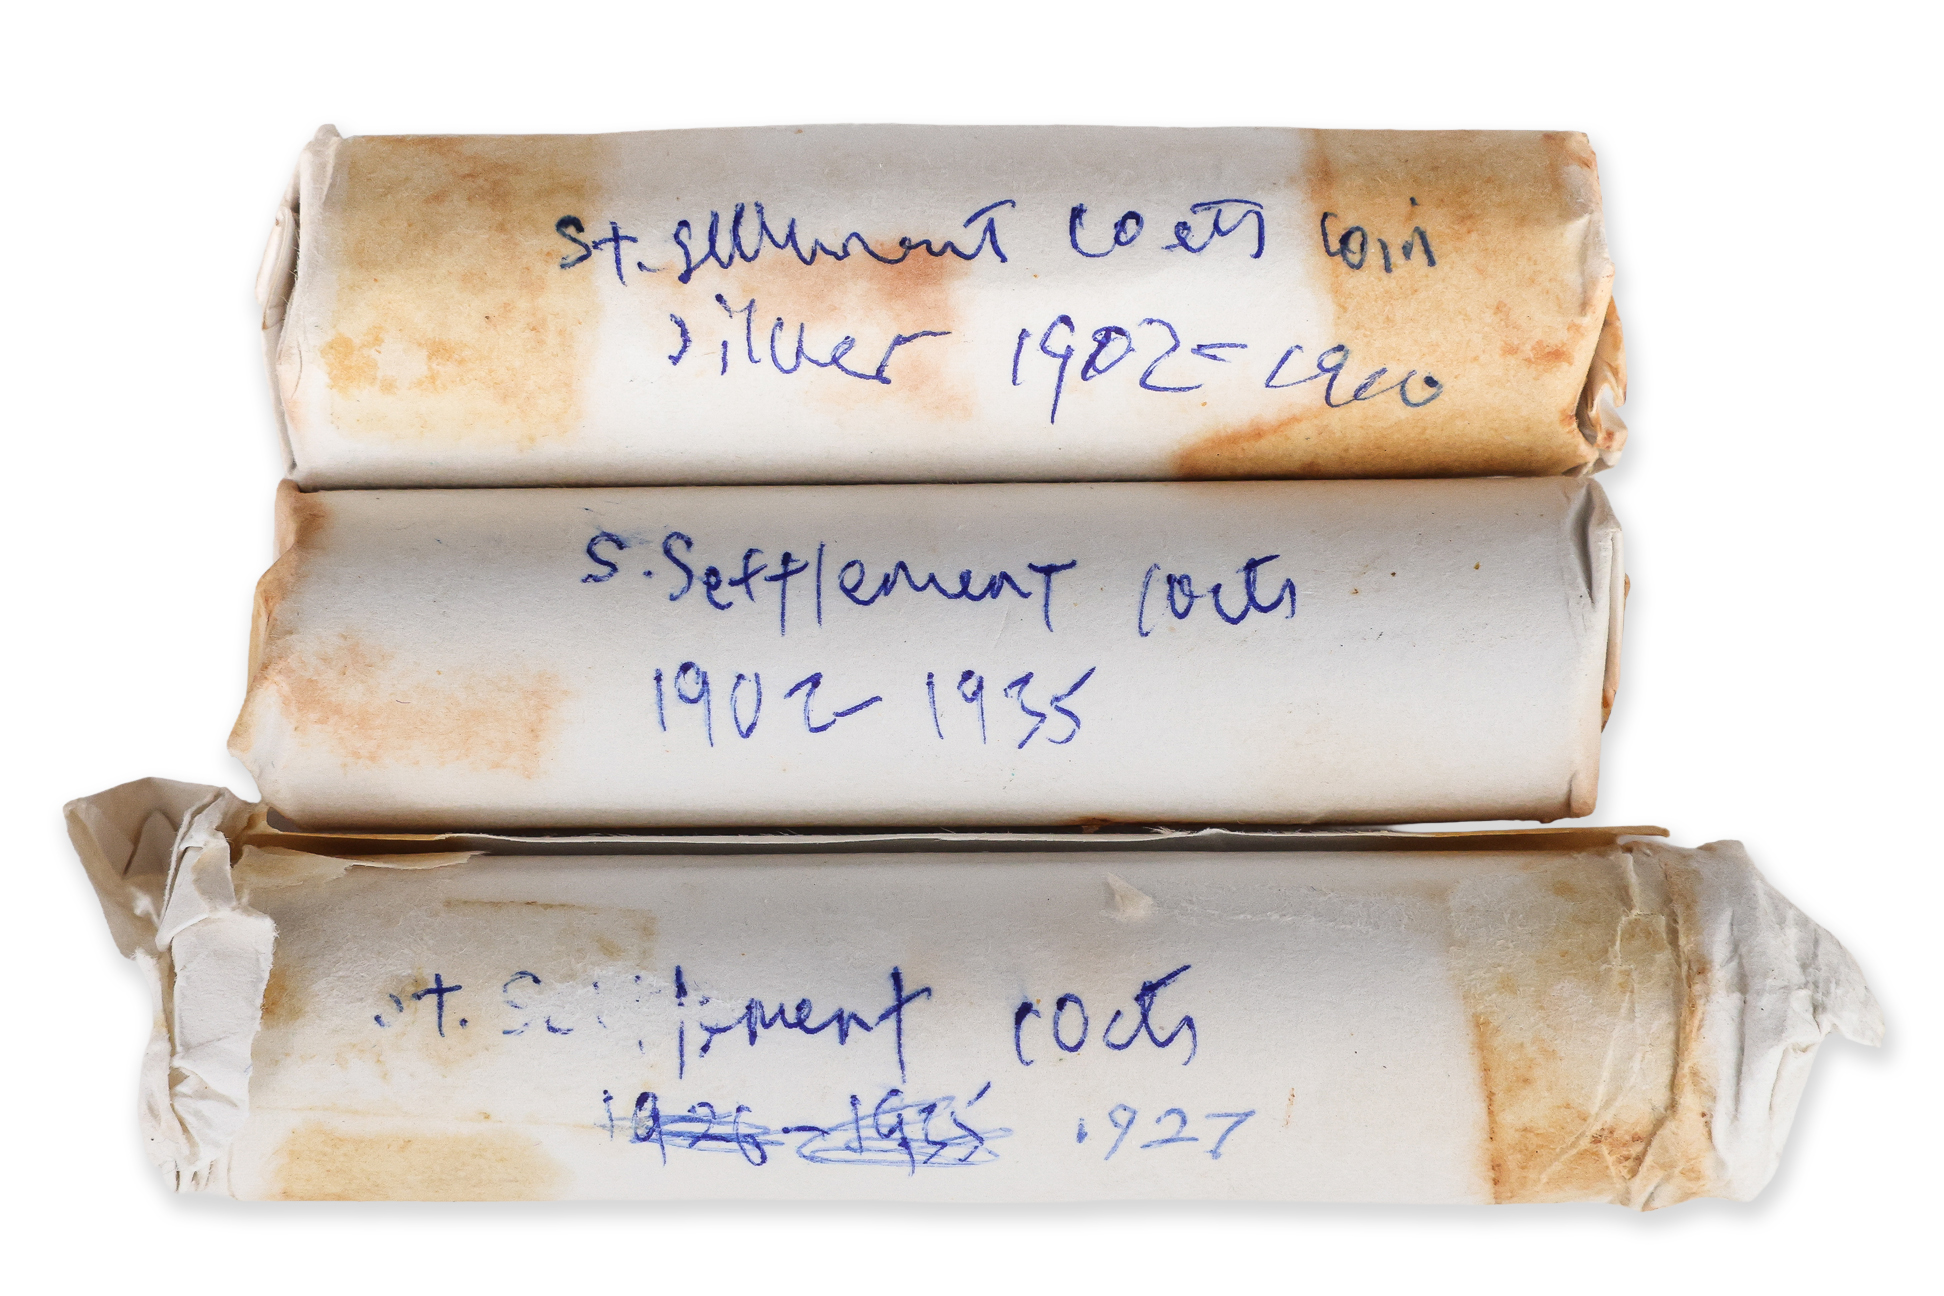 St. settlement 10 cts coin
silver 1902 - 1910
S. Settlement 10 cts
1902 - 1935
st. Settlement 10 cts
1926 - 1935 1927